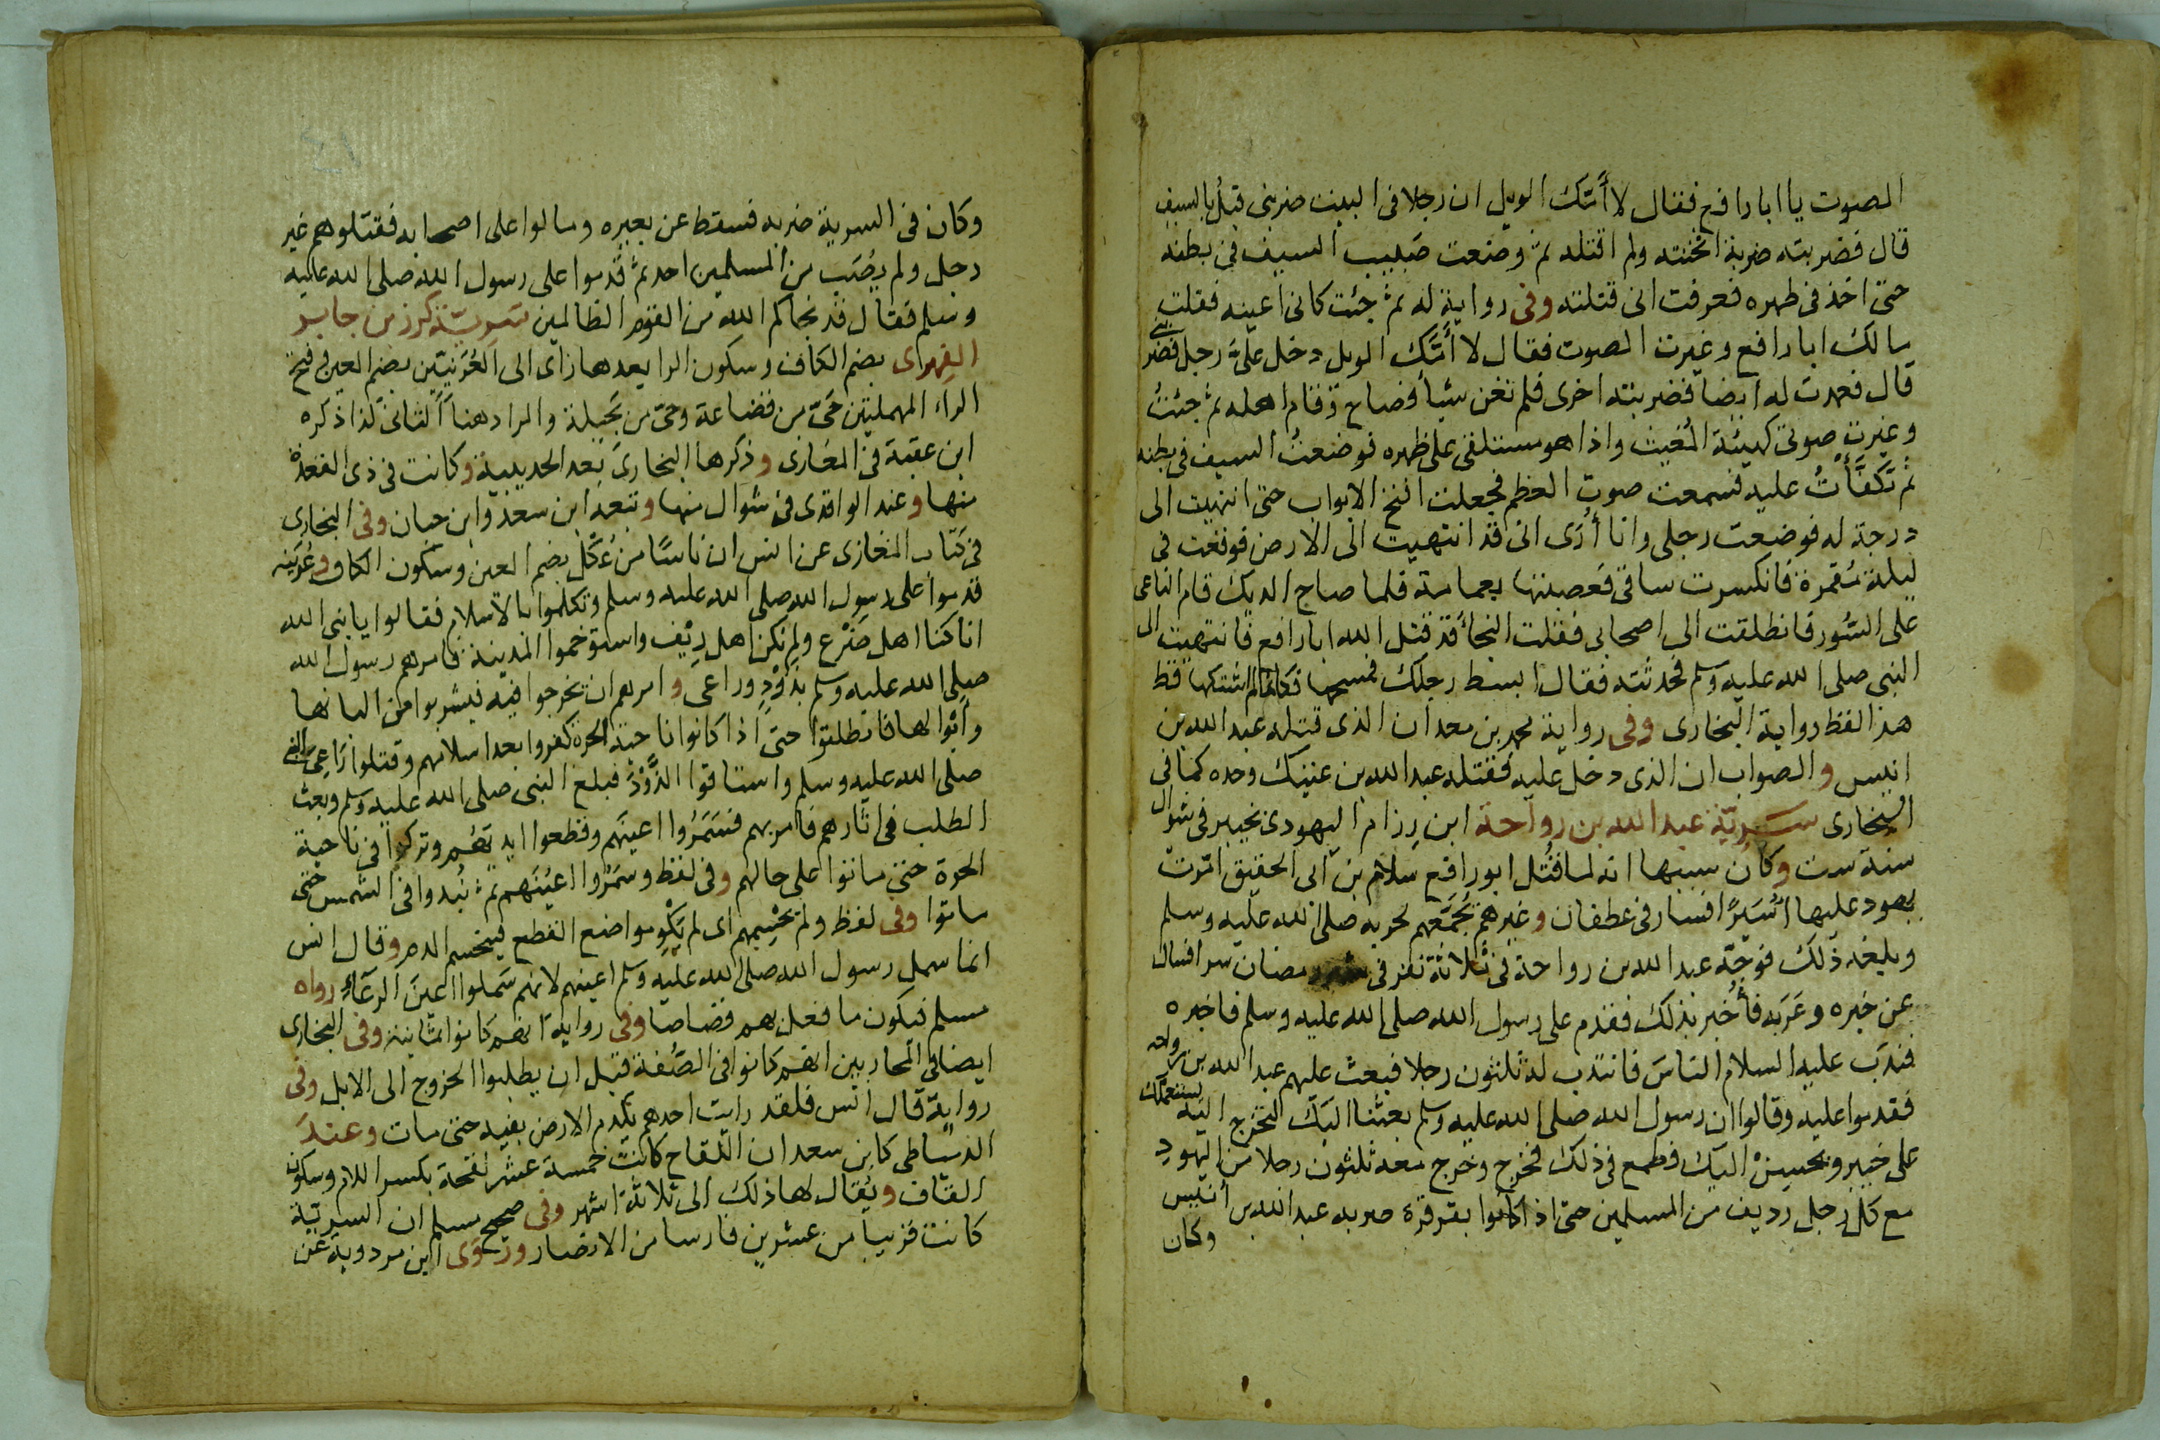 الصوت يا ابا رافع فقال لا أُمَّكَ الويل ان رجلا في البيت ضربني قبلُ بالسيف
قال فضربته ضربة اثخنته ولم اقتله ثم وضعت ضبيب السيف في بطنه
حتى اخذ في ظهره فعرفت اني قتلته وفي رواية له ثم جئت كاني اعينه فقلت
مالك ابا رافع وغيرت الصوت فقال لا أُمَّكَ الويل دخل علىَّ رجل فضربني
قال فعمدت له ايضا فضربته اخرى فلم تغن شيأ فصاح وقام اهله ثم جئتُ
وغيرت صوتي كهيئة المُغيث واذا هو مستلقى على ظهره فوضعتُ السيف في بطنه
ثم تكفَّأتُ عليه فسمعت صوت العظم فجعلت افتح الابواب حتى انتهيت الى
درجة له فوضعت رجلي وانا أُرَى اني قد انتهيت الى الارض فوقعت في
ليلة مُقمرة فانكسرت ساقي فعصبتها بعمامة فلما صاح الديك قام الناعي
على السُّور فانطلقت الى اصحابي فقلت النجأ قد قتل الله ابا رافع فانتهيت الى
النبي صلى الله عليه وسلم فحدثته فقال ابسط رجلك فمسحها فكانما لم اشتكها قط
هذا لفظ رواية البخاري وفي رواية محمد بن سعد ان الذي قتله عبد الله بن
انيس والصواب ان الذي دخل عليه فقتله عبد الله بن عتيك وحده كما في
البخارى سَريّة عبد الله بن رواحة ابن رِزام اليهودى بخيبر في شوال
سنة ست وكان سببها انه لما قُتل ابو رافع سلام بن ابي الحقيق امّرت
يهود عليها أُسَيرًا فسار في غطفان وغيرهم يُجَمّعهم لحربه صلى الله عليه وسلم
وبلغه ذلك فوجّه عبد الله بن رواحة في ثلاثة نفر في شهر رمضان سرا فسال
عن خبره وغَرّبه فأُخبر بذلك فقدم على رسول الله صلى الله عليه وسلم فاخبره
فندب عليه السلام الناسَ فانتدب له ثلثون رجلا فبعث عليهم عبد الله بن رواحه
فقدموا عليه وقالوا ان رسول الله صلى الله عليه وسلم بعثنا اليك لتخرج اليه يستعملك
على خيبر ويحسنْ اليك فطمع في ذلك فخرج وخرج معه ثلثون رجلا من اليهود
مع كل رجل رديف من المسلمين حتى اذا كانوا بقرقرة ضربه عبد الله بن أُنيس
وكان
وكان في السرية ضربه فسقط عن بعيره ومالوا على اصحابه فقتلوهم غير
رجل ولم يُصَب من المسلمين احد ثم قدموا على رسول الله صلى الله عليه
وسلم فقال قد نجاكم الله من القوم الظالمين سَريّة كرز بن جابر
الفهرى بضم الكاف وسكون الرا بعدها زاى الى العُرَنيّين بضم العين وفتح
الراء المهملتين حَىّ من قضاعة وحىّ من بَجيلة والمراد هنا الثانى كذا ذكره
ابن عقبة في المغازى وذكرها البخارى بعد الحديبية وكانت في ذى القعدة
منها وعند الواقدى في شوال منها وتبعه ابن سعد وابن حبان وفي البخارى
في كتاب المغازى عن انس ان ناسًا من عُكْل بضم العين وسكون الكاف وعُرَينه
قدموا على رسول الله صلى الله عليه وسلم وتكلموا بالاسلام فقالوا يا نبى الله
انا كنا اهل ضَرْع ولم نكن اهل رِيْف واستوخموا المدينة فامرهم رسول الله
صلى الله عليه وسلم بذَوْدٍ وراعى وامرهم ان يخرجوا فيه فيشربوا من البانها
وابوالها فانطلقوا حتى اذا كانوا ناحية الحرة كفروا بعد اسلامهم وقتلوا رَاعِىَ النبي
صلى الله عليه وسلم واستاقوا الذَّوْدَ فبلغ النبى صلى الله عليه وسلم وبعث
الطلب في اثارهم فامر بهم فسَمَرُوا اعينَهم وقطعوا ايديَهُم وتركوا في ناحية
الحرة حتى ماتوا على حالهم وفي لفظ وسَمَرُوا اعيُنَهم ثم نُبذوا في الشمس حتى
ماتوا وفي لفظ ولم يحْسِمهم اى لم يَكْوِ مواضع القطع فينحسم الدم وقال انس
انما سمل رسول الله صلى الله عليه وسلم اعينهم لانهم سَملوا اعينَ الرِّعَآءِ رواه
مسلم فيكون ما فعل بهم قصاصا وفي رواية انهم كانوا ثمانية وفي البخارى
ايضا في المحاربين انهم كانوا في الصُّفة قبل ان يطلبوا الخروج الى الابل وفي
رواية قال انس فلقد رايت احدهم يكدم الارض بفيه حتى مات وعند
الدمياطى كابن سعد ان اللقاح كانت خمسة عشر لقحة بكسر اللام وسكون
القاف ويُقال لها ذلك الى ثلاثة اشهر وفي صحيح مسلم ان السريّة
كانت قريبا من عشرين فارسا من الانصار ورَوَى ابن مردوية عن